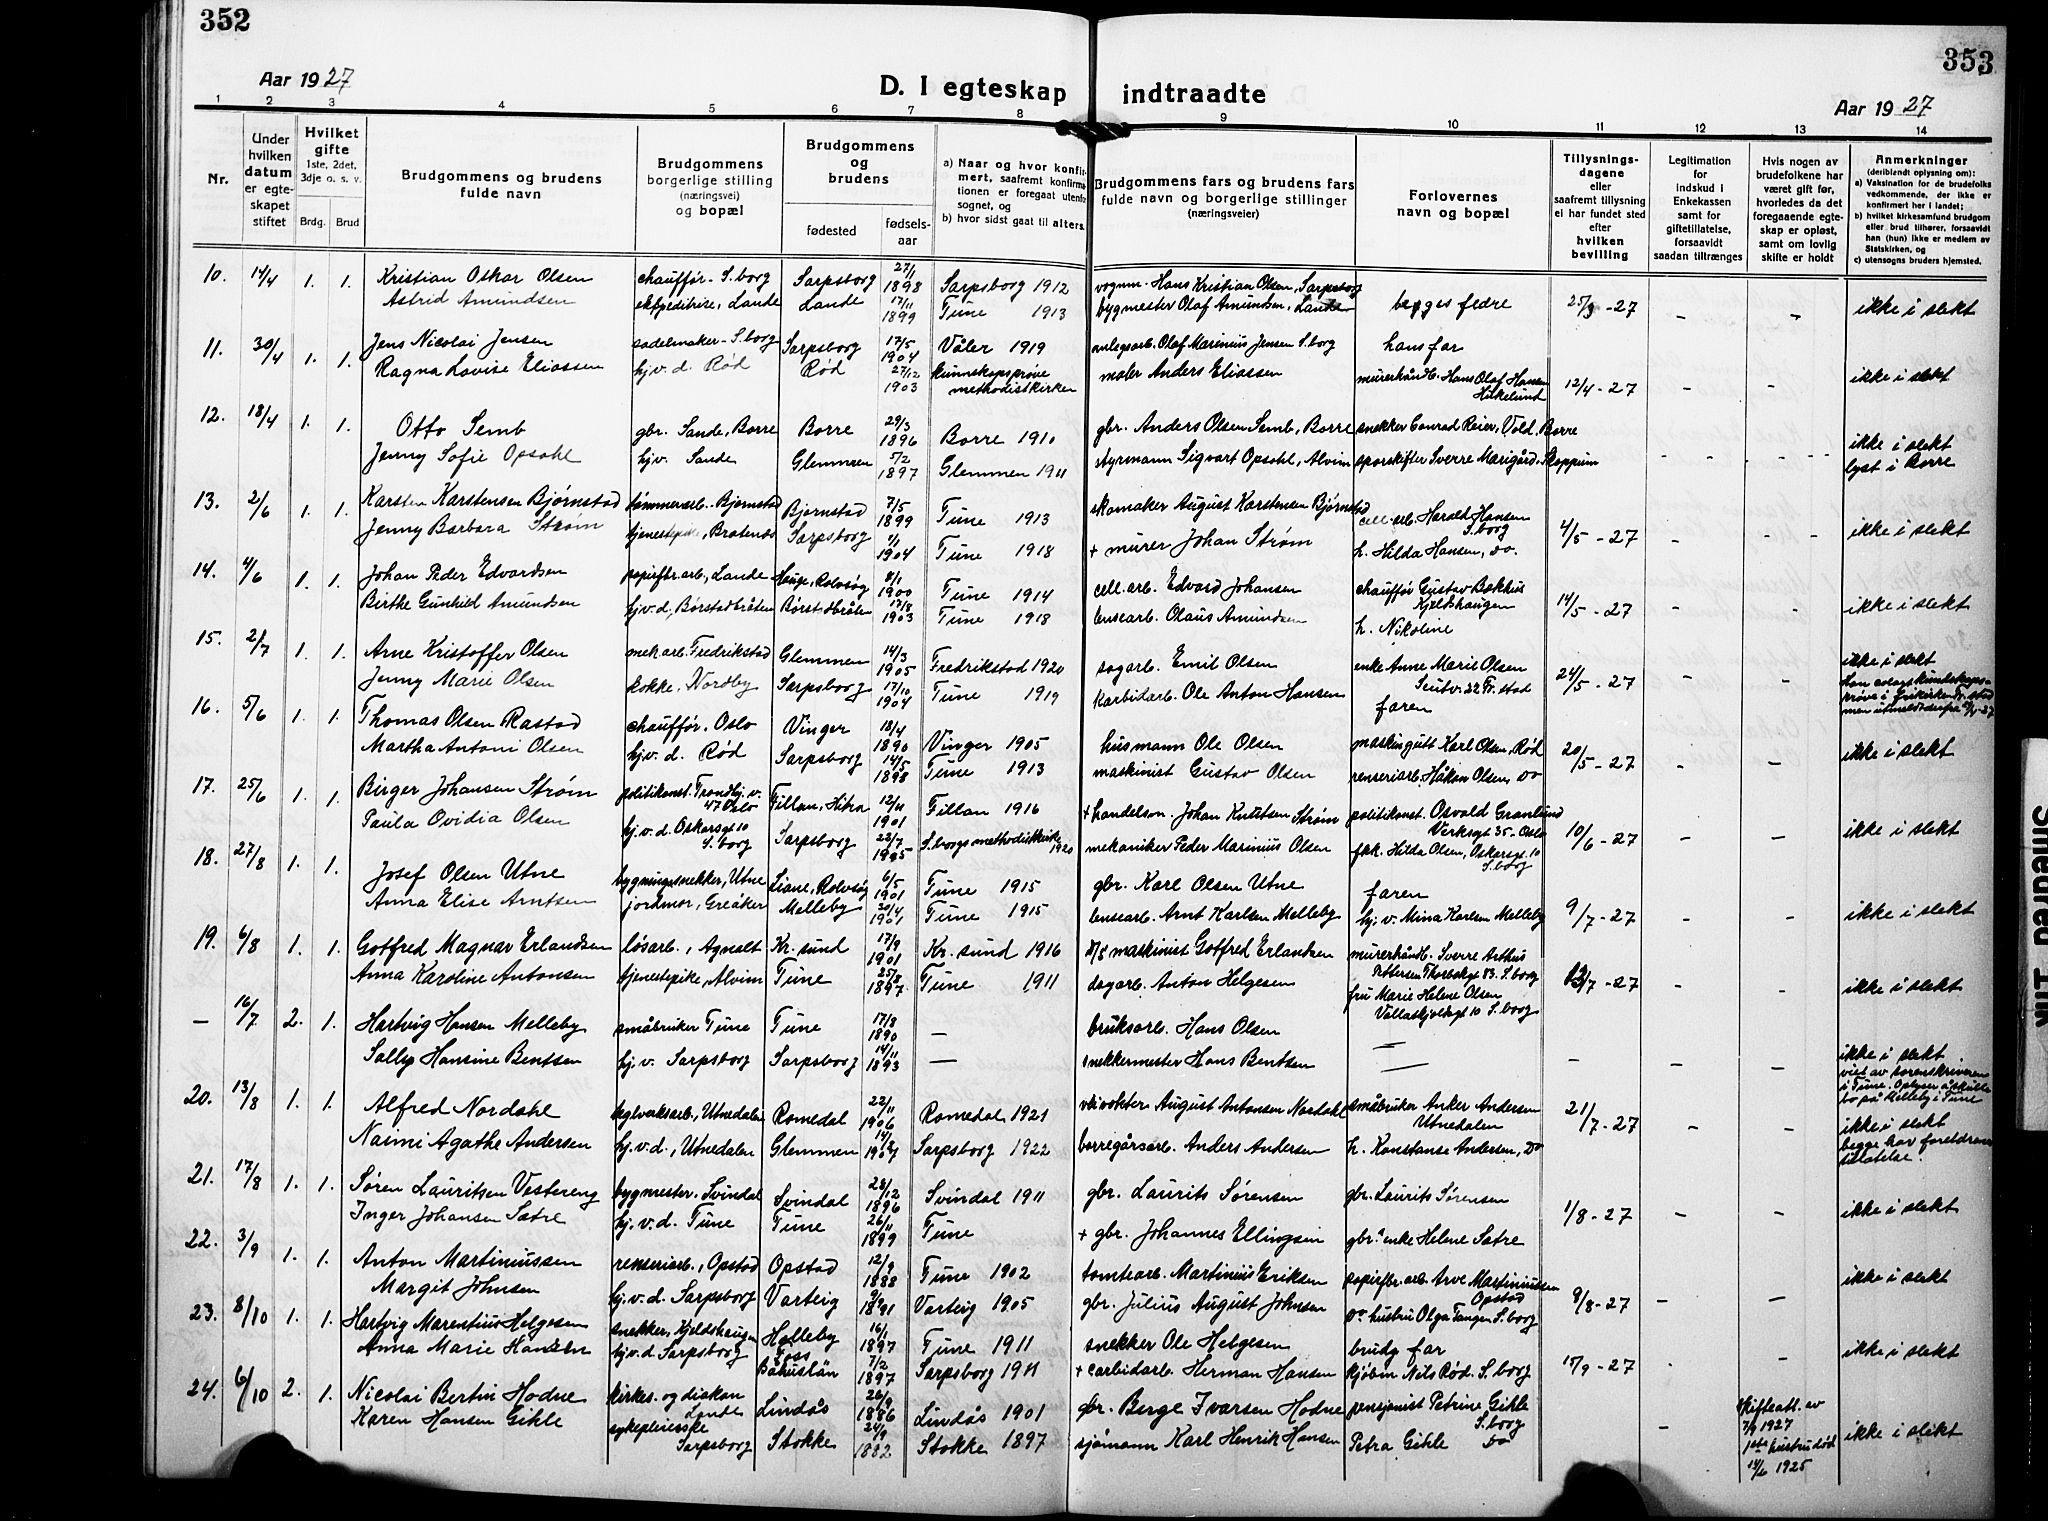 352
353
Aar 1927
D. I egteskap indtraadte
Aar 1927
1 2 3 4 5 6 7 8 9 10 11 12 13 14
Nr.
Under hvilken datum er egteskapet stiftet
Hvilket gifte 1ste, 2det, 3dje o. s. v.
Brdg. Brud
Brudgommens og brudens fulde navn
Brudgommens borgerlige stilling (næringsvei) og bopæl
Brudgommens og brudens
fødested
fødsels-aar
a) Naar og hvor konfirmert, saafremt konfirmationen er foregaat utenfor sognet, og
b) hvor sidst gaat til alters.
Brudgommens fars og brudens fars fulde navn og borgerlige stillinger (næringsveier)
Forlovernes navn og bopæl
Tillysnings-dagene eller saafremt tillysning ei har fundet sted efter hvilken bevilling
Legitimation for indskud i Enkekassen samt for giftetillatelse, forsaavidt saadan tiltrænges
Hvis nogen av brudefolkene har været gift før, hvorledes da det foregaaende egteskap er opløst, samt om lovlig skifte er holdt
Anmerkninger (deriblandt oplysning om):
a) Vaksination for de brudefolks vedkommende, der ikke er konfirmert her i landet;
b) hvilket kirkesamfund brudgom eller brud tilhører, forsaavidt han (hun) ikke er medlem av Statskirken, og
c) utensogns bruders hjemsted.
10. 14/4 1. 1. Kristian Oskar Olsen chauffør - S.borg Sarpsborg 27/1 1898 Sarpsborg 1912 vognm. Hans Kristian Olsen, Sarpsborg begges fedre 25/3 - 27 ikke i slekt
Astrid Amundsen ekspeditrise, Lande Lande 17/11 1899 Tune 1913 bygmester Olaf Amundsen, Lande
11. 30/4 1. 1. Jens Nicolai Jensen sadelmaker - S.borg Sarpsborg 17/5 1904 Våler 1919 anlegsarb. Olaf Marinius Jensen S.borg hans far
Ragna Lovise Eliassen hj.v. d. Rød Rød 27/12 1903 kunnskapsprøve methodistkirken maler Anders Eliassen murerhåndl. Hans Olaf Hansen Hikelund 12/4 - 27 ikke i slekt
12. 18/4 1. 1. Otto Semb gbr. Sande, Borre Borre 29/3 1896 Borre 1910 gbr. Anders Olsen Semb, Borre snekker Conrad Reier, Vold, Borre ikke i slekt
Jenny Sofie Opsahl hjv. Sande Glemmen 5/2 1897 Glemmen 1911 styrmann Sigvart Opsahl, Alvim sporskifter Sverre Marigård, Skoppum lyst i Borre
13. 2/6 1. 1. Karsten Karstensen Bjørnstad tømmerarb. Bjørnstad Bjørnstad 7/5 1899 Tune 1913 skomaker August Karstensen Bjørnstad cell. arb. Harald Hansen S.borg 4/5 - 27 ikke i slekt
Jenny Barbara Strøm tjenestepike, Bratenås Sarpsborg 1/1 1904 Tune 1918 + murer Johan Strøm h. Hilda Hansen, do.
14. 4/6 1. 1. Johan Peder Edvardsen papirfbr.arb., Lande Hauge, Rolvsøy 8/1 1900 Tune 1914 cell. arb. Edvard Johansen chauffør Gustav Bakkhus Kjeldshaugen 14/5 - 27 ikke i slekt
Birthe Gunhild Amundsen hj.v.d., Børstadbråten Børstadbråten 17/8 1903 Tune 1918 lensearb. Olaus Amundsen h. Nikoline
15. 2/7 1. 1. Arne Kristoffer Olsen mek.arb. Fredrikstad Glemmen 14/3 1905 Fredrikstad 1920 sagarb. Emil Olsen enke Anne Marie Olsen 24/5 - 27 ikke i slekt
Jenny Marie Olsen kokke, Nordby Sarpsborg 17/10 1904 Tune 1919 karbidarb. Ole Anton Hansen faren
16. 5/6 1. 1. Thomas Olsen Rastad chauffør. Oslo Vinger 18/4 1890 Vinger 1905 husmann Ole Olsen maskingutt Karl Olsen, Rød 20/5 - 27 ikke i slekt
Martha Antoni Olsen hj.v. d. Rød Sarpsborg 14/5 1898 Tune 1913 maskinist Gustav Olsen renseriarb. Håkon Olsen, do
17. 25/6 1. 1. Birger Johansen Strøm politikonst. Trondhj.v. 47 Oslo Fillan, Hitra 12/11 1901 Fillan 1916 + handelsm. Johan Knutsen Strøm politikonst. Osvald Granlund Verksgt 35 - Oslo 10/6 - 27 ikke i slekt
Paula Ovidia Olsen hj.v.d. Oskarsgt 10 S.borg Sarpsborg 22/7 1905 S.borgs methodistkirke 1920 mekaniker Peder Marinius Olsen frk. Hilda Olsen, Oskarsgt. 10 S.borg
18. 27/8 1. 1. Josef Olsen Utne bygningssnekker, Utne Liane, Rolvsøy 6/5 1901 Tune 1915 gbr. Karl Olsen Utne faren 9/7 - 27 ikke i slekt
Anna Elise Arntsen jordmor, Greåker Melleby 30/4 1901 Tune 1915 lensearb. Arnt Karlsen Melleby hj.v. Mina Karlsen Melleby
19. 6/8 1. 1. Gotfred Magnar Erlandsen løsarb., Agnalt Kr. sund 17/9 1901 Kr. sund 1916 D/S maskinist Gotfred Erlandsen murerhåndl. Sverre Arthus Pettersen Thorbskgt 83. S.borg 13/7 - 27 ikke i slekt
Anna Karoline Antonsen tjenestepike, Alvim Tune 25/8 1897 Tune 1911 dagarb. Anton Helgesen fru Marie Helene Olsen Vallaskjoldsgt 10 S.borg
— 16/7 2. 1. Hartvig Hansen Melleby småbruker Tune Tune 17/8 1890 — bruksarb. Hans Olsen — ikke i slekt
Sally Hansine Bentsen hj.v. Sarpsborg Sarpsborg 14/11 1893 — snekkermester Hans Bentsen — viet av sorenskriveren i Tune. Oplyser å skulle bo på Melleby i Tune
20. 13/8 1. 1. Alfred Nordahl teglverksarb., Utnedalen Romedal 22/11 1906 Romedal 1921 veivokter August Antonsen Nordahl småbruker Anker Andersen Utnedalen 21/7 - 27 ikke i slekt
Naomi Agathe Andersen hj.v.d., Utnedalen Glemmen Sarpsborg 1922 borregårsarb. Anders Andersen h. Konstanse Andersen, do begge har foreldrenes tillatelse.
21. 17/8 1. 1. Søren Lauritsen Vestereng bygmester. Svindal Svindal 28/12 1896 Svindal 1911 gbr. Laurits Sørensen gbr. Laurits Sørensen 1/8 - 27 ikke i slekt
Inger Johansen Satre hj.v.d. Tune Tune 26/11 1899 Tune + gbr. Johannes Ellingsen gbr.enke Helene Satre
22. 3/9 1. 1. Anton Martiniussen renseriarb., Opstad Opstad 12/9 1888 Tune 1902 tomtearb. Martinius Eriksen papirfbr.arb. Arve Martiniussen Opstad 9/8 - 27 ikke i slekt
Margit Johnsen hj.v.d. Sarpsborg Varteig 9/1 1891 Varteig 1905 gbr. Julius August Johnsen do hustru Olga Tangen S.borg
23. 8/10 1. 1. Hartvig Marentius Helgesen snekker, Kjeldshaugen Halleby 16/1 1897 Tune 1911 snekker Ole Helgesen bruds far 15/9 - 27 ikke i slekt
Anna Marie Hansen hj.v.d Sarpsborg Foss Båhuslän 7/2 1897 Sarpsborg 1911 + carbidarb. Herman Hansen kjøbm Nils Rød. S.borg
24. 6/10 2. 1. Nicolai Bertin Hodne kirkes. og diakon Lande Lindås 26/9 1886 Lindås 1901 gbr. Berge Ivarsen Hodne pensjonist Petrine Gihle S.borg skifteatt. av 7/9 1927 ikke i slekt
Karen Hansen Gihle sykepleierske Sarpsborg Stokke 24/9 1882 Stokke 1897 sjømann Karl Henrik Hansen Petra Gihle do 1ste hustru død 14/6 1925